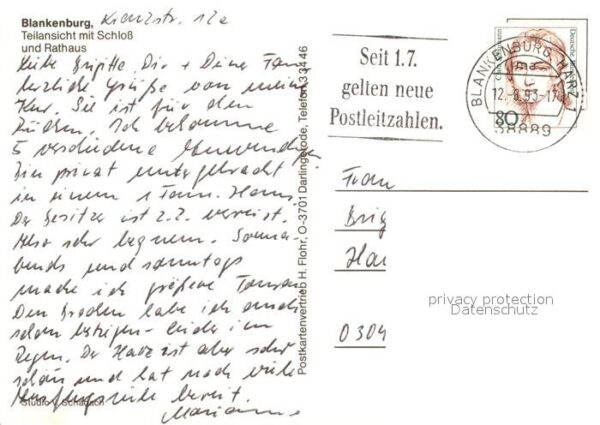 Blankenburg, Kranzstr. 12a
Teilansicht mit Schloß
und Rathaus
Liebe Brigitte, Dir + Deiner Fam.
herzliche Grüße von meiner
Kur. Sie ist für den
Rücken. Ich bekomme
5 verschiedene Anwendungen
Bin privat untergebracht
in einem 1 Fam. Haus.
Der Besitzer ist z.Z. verreist.
Also sehr bequem. Sonna-
bends und sonntags
mache ich größere Touren.
Den Brocken habe ich auch
schon bestiegen - leider im
Regen. Der Harz ist aber sehr
schön und hat noch viele
Ausflugsziele bereit.
Marianne
Postkartenvertrieb H. Flohr, O-3701 Darlingerode, Telefon 3 34 46
Seit 1.7.
gelten neue
Postleitzahlen.
BLANKENBURG, HARZ 1
12.-8.93-17
38889
80
Deutsche
Frau
Brig
Hai
0304
privacy protection
Datenschutz